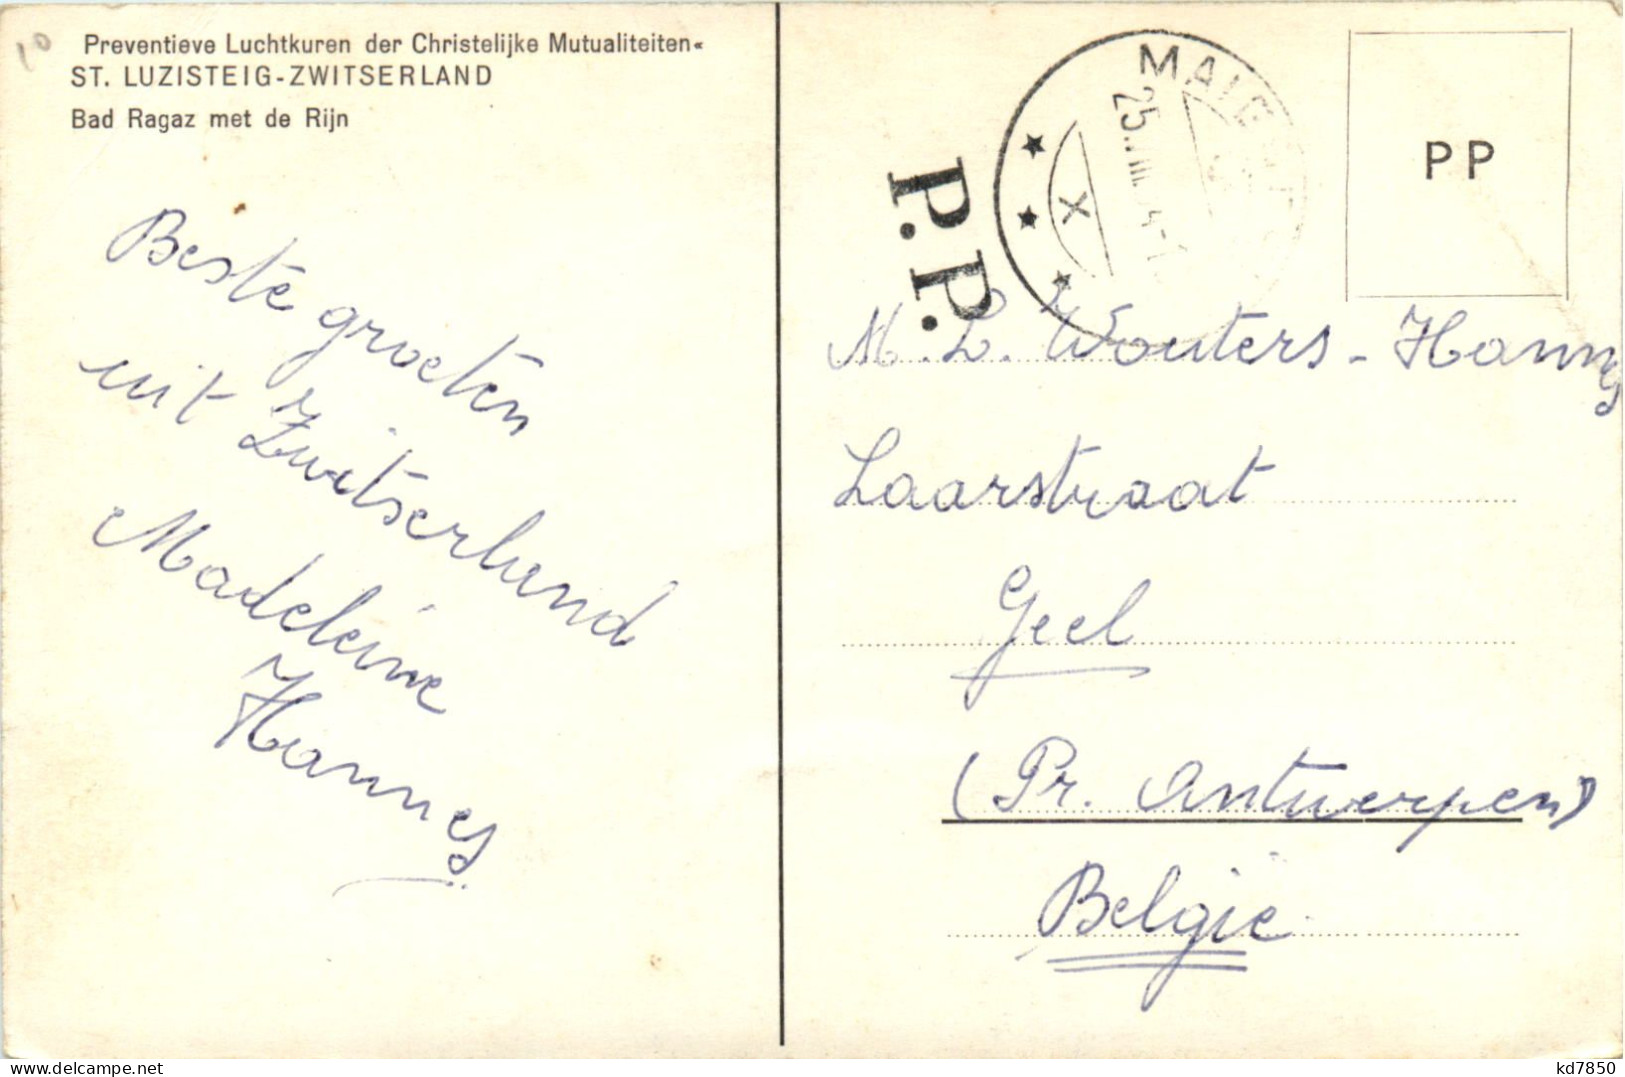 10
Preventieve Luchtkuren der Christelijke Mutualiteiten«
ST. LUZISTEIG-ZWITSERLAND
Bad Ragaz met de Rijn
Beste groeten
uit Zwitserland
Madeleine
Hannes
P.P.
25.VIII.
X
PP
M. L. Wouters - Hannes
Laarstraat
Geel
(Pr. Antwerpen)
België
kd7850